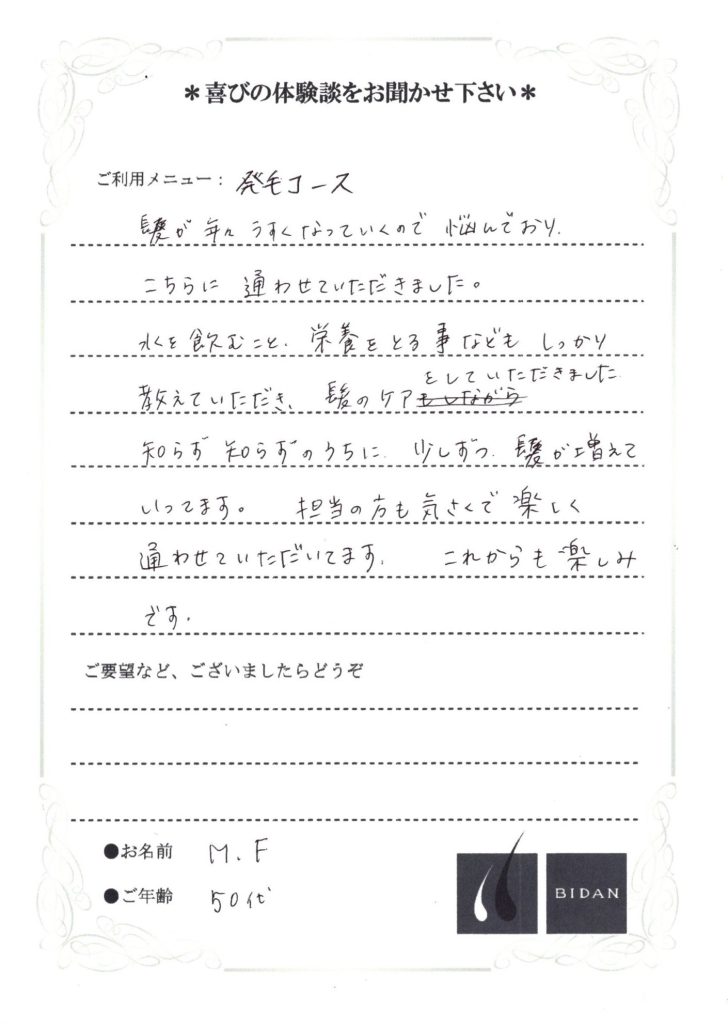 ＊喜びの体験談をお聞かせ下さい＊
ご利用メニュー： 発毛コース
髪が 年々 うすくなっていくので 悩んでおり、
こちらに 通わせていただきました。
水を飲むこと、栄養をとる事なども しっかり
をしていただきました
教えていただき、 髪のケアもしながら
知らず知らずのうちに、少しずつ、髪が増えて
いってます。 担当の方も気さくで楽しく
通わせていただいてます。 これからも楽しみ
です。
ご要望など、ございましたらどうぞ
●お名前 M.F
●ご年齢 50代
BIDAN